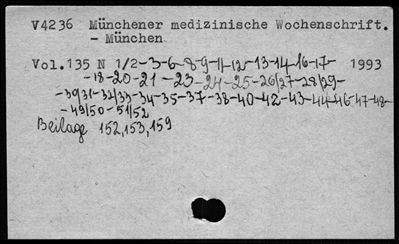 V4236 Münchener medizinische Wochenschrift.
- München
Vol.135 N 1/2-3-6-8-9-11-12-13-14-16-17- 1993
-18-20-21-23-24-25-26/27-28/29-
-30/31-32/33-34-35-37-38-40-42-43-44-46-47-48-
-49/50-51/52
Beilage 152,153,159